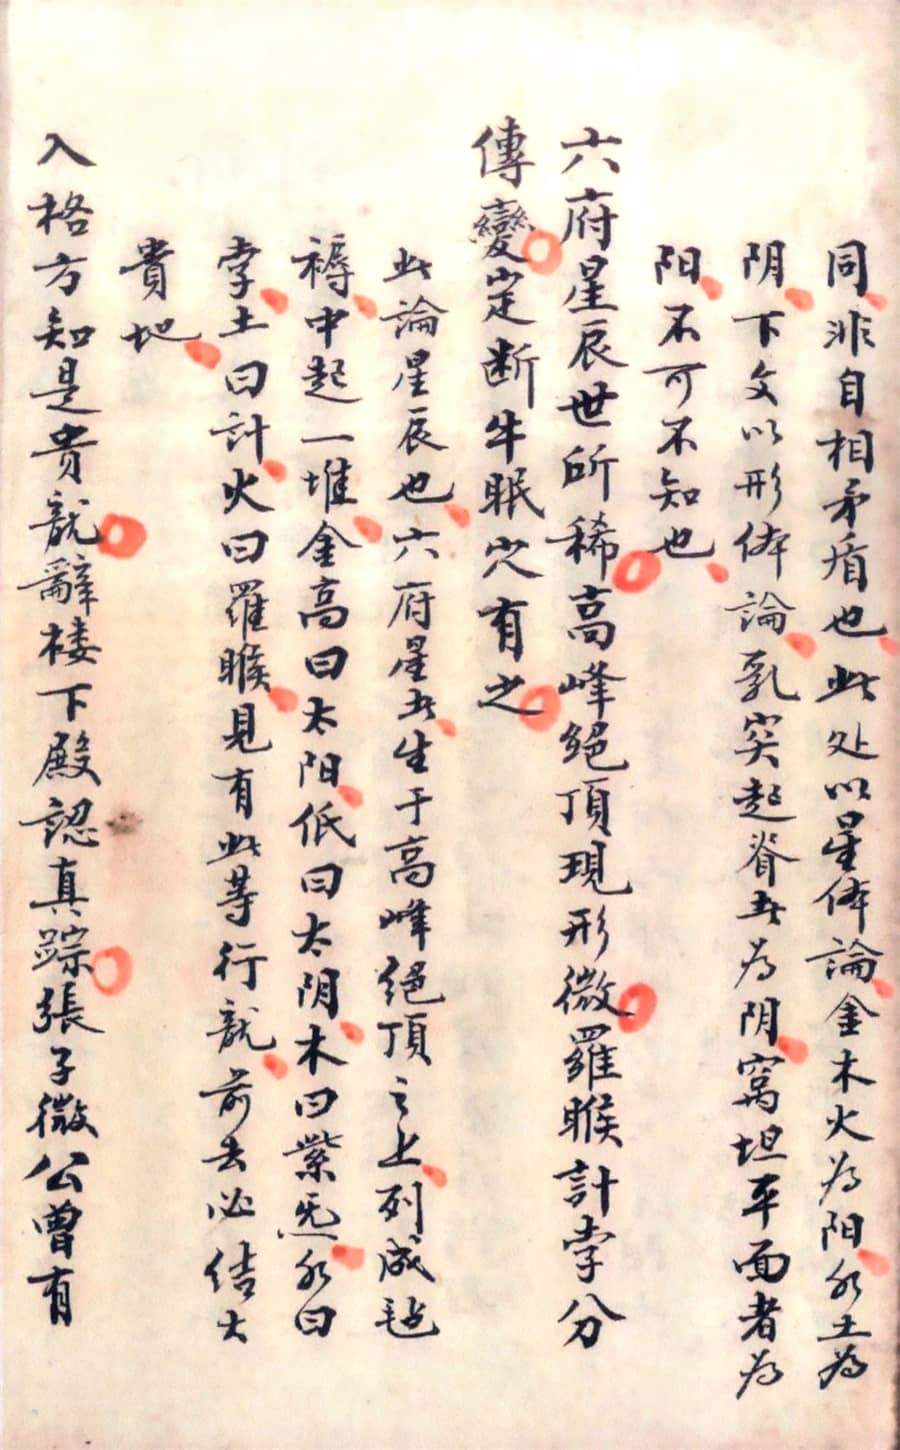 同非自相矛盾也此处以星体論金木火为阳水土为
阴下文以形体論乳突起脊者为阴窩坦平面者为
阳不可不知也
六府星辰世所稀高峰絕頂現形微羅睺計孛分
傳變定断牛眠穴有之
此論星辰也六府星者生于高峰絕頂之上列成毡
褥中起一堆金高曰太阳低曰太阴木曰紫炁水曰
孛土曰計火曰羅睺見有此等行龍前去必结大
貴地
入格方知是貴龍辭楼下殿認真踪張子微公曾有